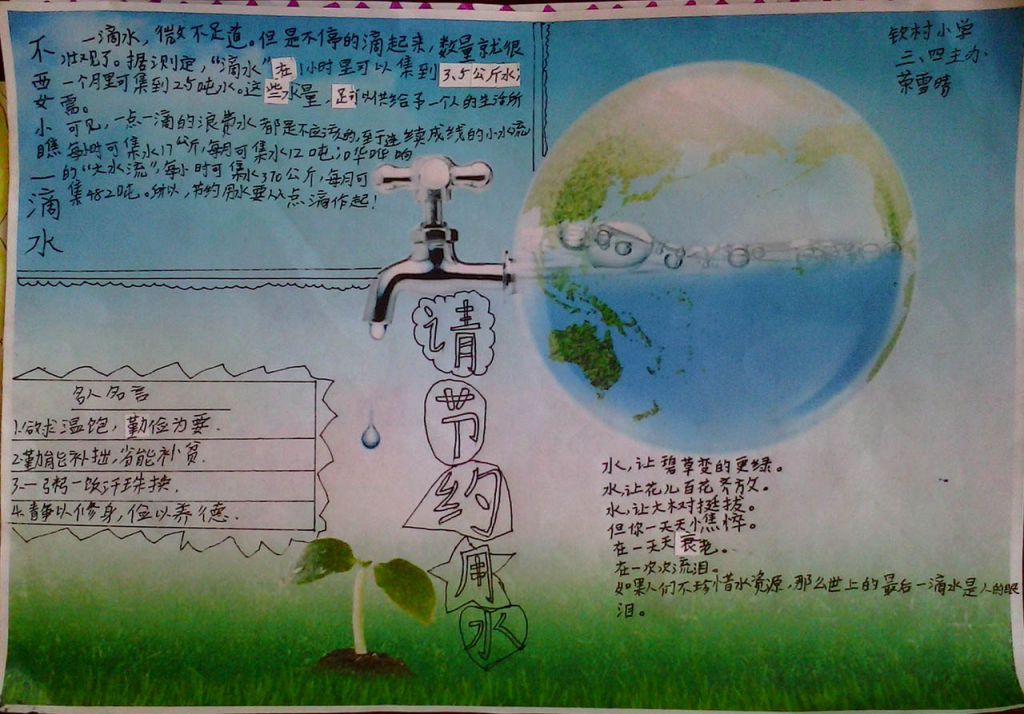 不要小瞧一滴水
一滴水，微不足道。但是不停的滴起来，数量就很
可观了。据测定，“滴水”在1小时里可以集到3.5公斤水;
一个月里可集到2.5吨水。这些水量，足可以供给予一个人的生活所
需。
可见，一点一滴的浪费水都是不应该的，至于连续成线的小水流
每小时可集水17公斤，每月可集水12吨；哗哗响
的“大水流”，每小时可集水370公斤，每月可
集482吨。所以，节约用水要从点滴作起！
钦村小学
三、四主办
荣雪晴
请节约用水
名人名言
1.欲求温饱，勤俭为要.
2.勤能补拙，省能补贫.
3.一粥一饭汗珠换.
4.静以修身，俭以养德.
水，让碧草变的更绿。
水，让花儿百花齐放。
水，让大树挺拔。
但你一天天憔悴。
在一天天衰老。
在一次次流泪。
如果人们不珍惜水资源，那么世上的最后一滴水是人的眼
泪。